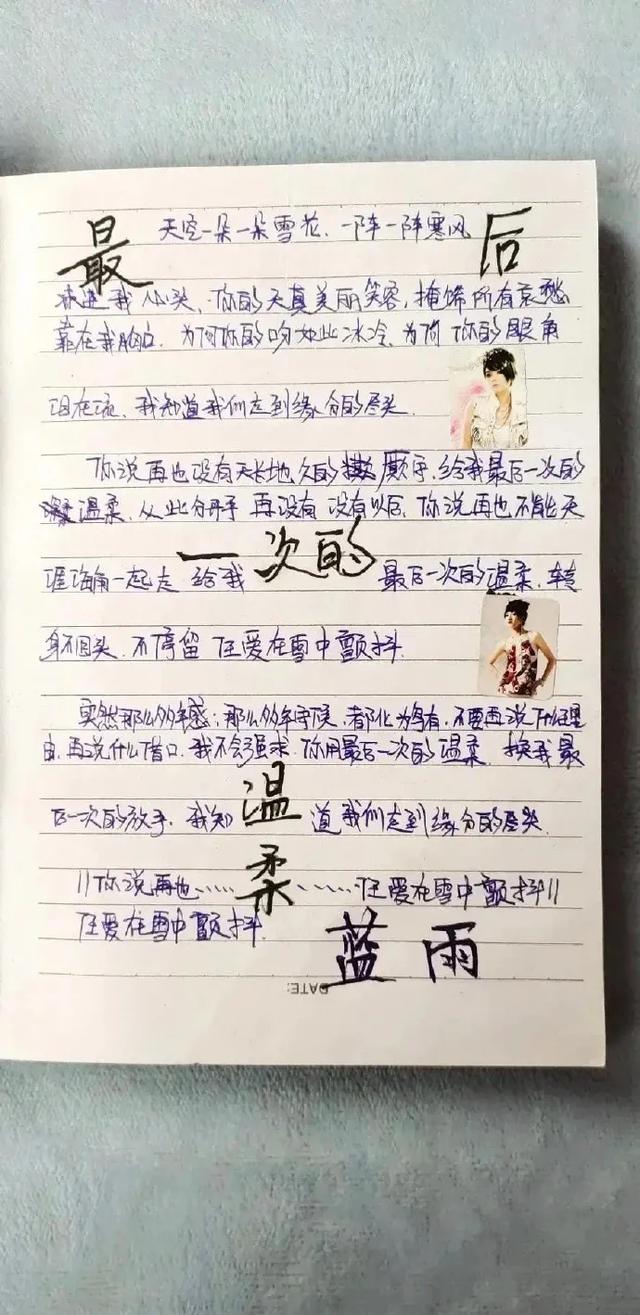 最 天空一朵一朵雪花、一阵一阵寒风 后
冰进我心头、你的天真美丽笑容,掩饰所有哀愁
靠在我胸口 为何你的吻如此冰冷、为何你的眼角
泪在流、我知道我们走到缘分的尽头
你说再也没有天长地久的 厮守、给我最后一次的
温柔、从此分手 再没有 没有以后、你说再也不能天
一次的
涯海角一起走 给我 最后一次的温柔、转
身不回头、不停留 任爱在雪中颤抖
突然那么多年感,那么多年守候、都化为乌有,不要再说什么理
由、再说什么借口、我不会强求、你用最后一次的温柔、换我最
温
后一次的放手、我知 道我们走到缘分的尽头
柔
||你说再也…… ……任爱在雪中颤抖||
任爱在雪中颤抖
蓝雨
DATE: